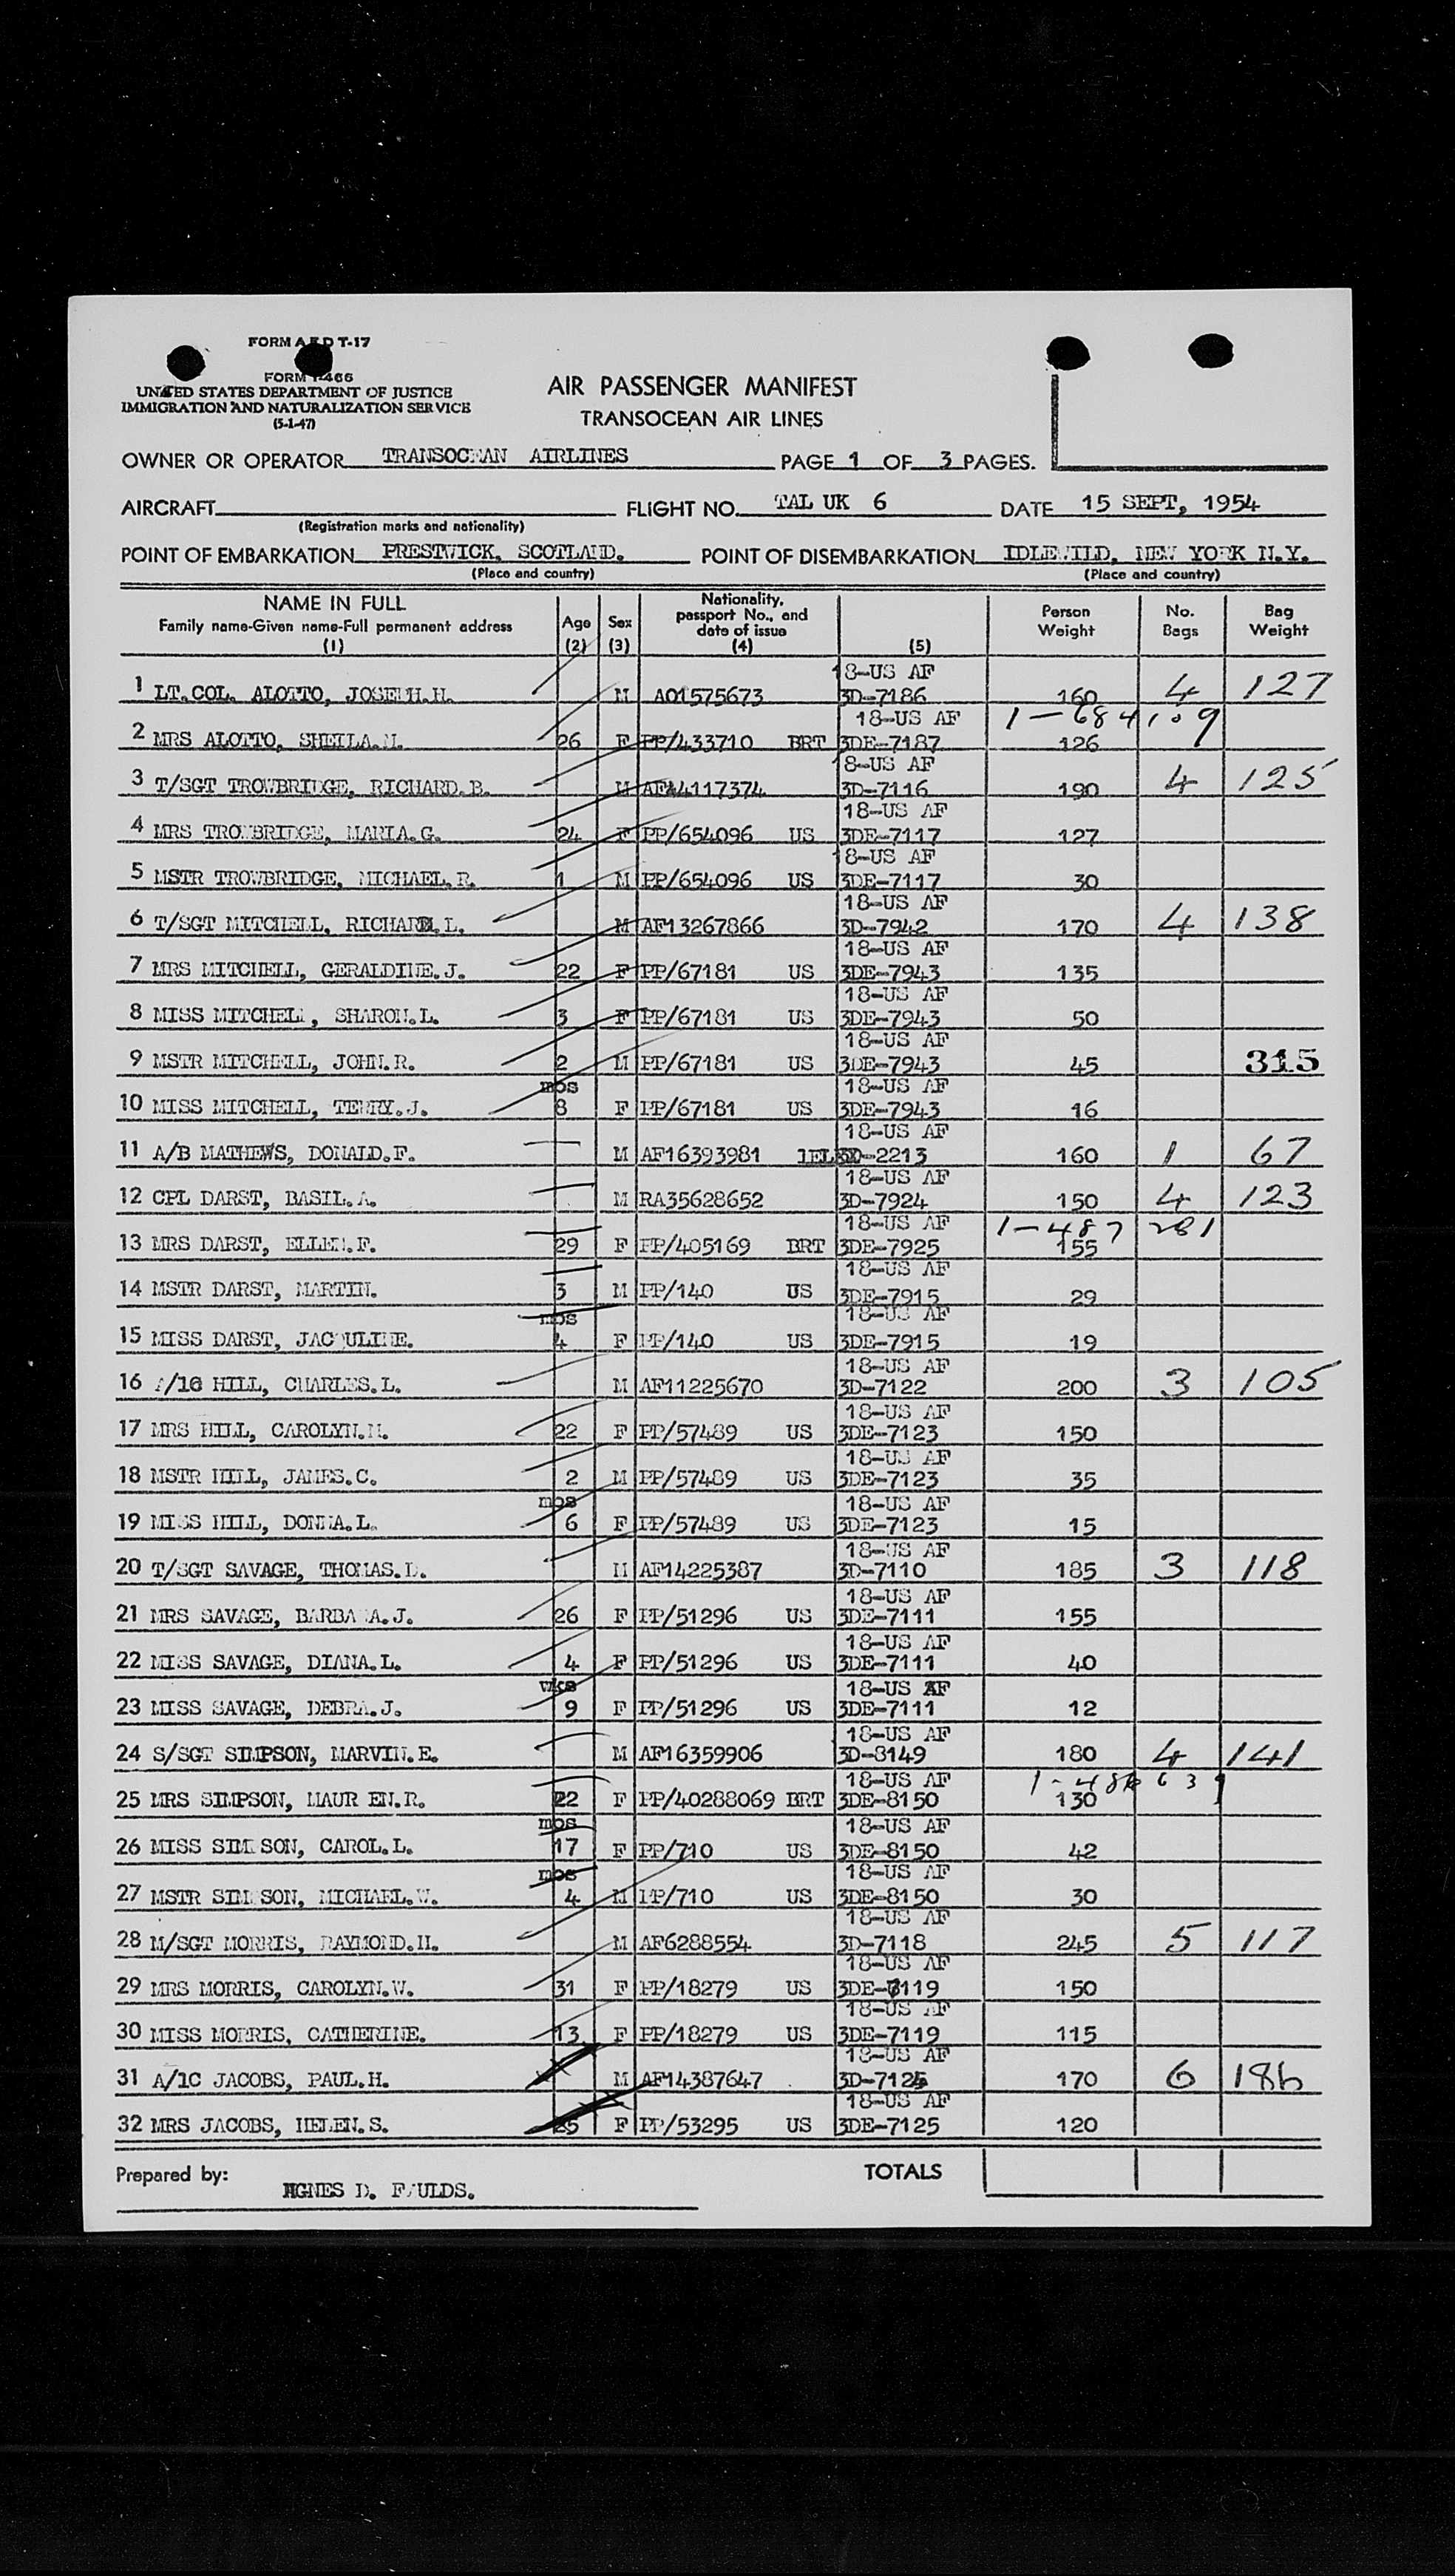 FORM A E D T-17
FORM I-466
UNITED STATES DEPARTMENT OF JUSTICE
IMMIGRATION AND NATURALIZATION SERVICE
(5-1-47)
AIR PASSENGER MANIFEST
TRANSOCEAN AIR LINES
OWNER OR OPERATOR TRANSOCEAN AIRLINES PAGE 1 OF 3 PAGES.
AIRCRAFT FLIGHT NO. TAL UK 6 DATE 15 SEPT, 1954
(Registration marks and nationality)
POINT OF EMBARKATION PRESTWICK, SCOTLAND. POINT OF DISEMBARKATION IDLEWILD, NEW YORK N.Y.
(Place and country) (Place and country)
NAME IN FULL Family name-Given name-Full permanent address (1) Age (2) Sex (3) Nationality, passport No., and date of issue (4) (5) Person Weight No. Bags Bag Weight
18-US AF
1 LT.COL. ALOTTO, JOSEPH.H. M AO1575673 3D-7186 160 4 127
18-US AF 1-684109
2 MRS ALOTTO, SHEILA.M. 26 F PP/433710 BRT 3DE-7187 126
18-US AF
3 T/SGT TROWBRIDGE, RICHARD.B. M AF44117374 3D-7116 190 4 125
18-US AF
4 MRS TROWBRIDGE, MARIA.G. 24 F PP/654096 US 3DE-7117 127
18-US AF
5 MSTR TROWBRIDGE, MICHAEL.R. 1 M PP/654096 US 3DE-7117 30
18-US AF
6 T/SGT MITCHELL, RICHARD.L. M AF13267866 3D-7942 170 4 138
18-US AF
7 MRS MITCHELL, GERALDINE.J. 22 F PP/67181 US 3DE-7943 135
18-US AF
8 MISS MITCHELL, SHARON.L. 3 F PP/67181 US 3DE-7943 50
18-US AF
9 MSTR MITCHELL, JOHN.R. 2 M PP/67181 US 3DE-7943 45 315
mos 18-US AF
10 MISS MITCHELL, TERRY.J. 8 F PP/67181 US 3DE-7943 16
18-US AF
11 A/B MATHEWS, DONALD.F. M AF16393981 -2213 160 1 67
18-US AF
12 CPL DARST, BASIL.A. M RA35628652 3D-7924 150 4 123
18-US AF 1-487281
13 MRS DARST, ELLEN.F. 29 F PP/405169 BRT 3DE-7925 155
18-US AF
14 MSTR DARST, MARTIN. 3 M PP/140 US 3DE-7915 29
mos 18-US AF
15 MISS DARST, JACQULINE. 4 F PP/140 US 3DE-7915 19
18-US AF
16 A/1C HILL, CHARLES.L. M AF11225670 3D-7122 200 3 105
18-US AF
17 MRS HILL, CAROLYN.M. 22 F PP/57489 US 3DE-7123 150
18-US AF
18 MSTR HILL, JAMES.C. 2 M PP/57489 US 3DE-7123 35
mos 18-US AF
19 MISS HILL, DONNA.L. 6 F PP/57489 US 3DE-7123 15
18-US AF
20 T/SGT SAVAGE, THOMAS.D. M AF14225387 3D-7110 185 3 118
18-US AF
21 MRS SAVAGE, BARBARA.J. 26 F PP/51296 US 3DE-7111 155
18-US AF
22 MISS SAVAGE, DIANA.L. 4 F PP/51296 US 3DE-7111 40
wks 18-US AF
23 MISS SAVAGE, DEBRA.J. 9 F PP/51296 US 3DE-7111 12
18-US AF
24 S/SGT SIMPSON, MARVIN.E. M AF16359906 3D-8149 180 4 141
18-US AF
25 MRS SIMPSON, MAUREEN.R. 22 F PP/40288069 BRT 3DE-8150 130
mos 18-US AF
26 MISS SIMPSON, CAROL.L. 17 F PP/710 US 3DE-8150 42
mos 18-US AF
27 MSTR SIMPSON, MICHAEL.W. 4 M PP/710 US 3DE-8150 30
18-US AF
28 M/SGT MORRIS, RAYMOND.H. M AF6288554 3D-7118 245 5 117
18-US AF
29 MRS MORRIS, CAROLYN.W. 31 F PP/18279 US 3DE-7119 150
18-US AF
30 MISS MORRIS, CATHERINE. 13 F PP/18279 US 3DE-7119 115
18-US AF
31 A/1C JACOBS, PAUL.H. M AF14387647 3D-7124 170 6 186
18-US AF
32 MRS JACOBS, HELEN.S. 25 F PP/53295 US 3DE-7125 120
Prepared by: AGNES D. FAULDS. TOTALS